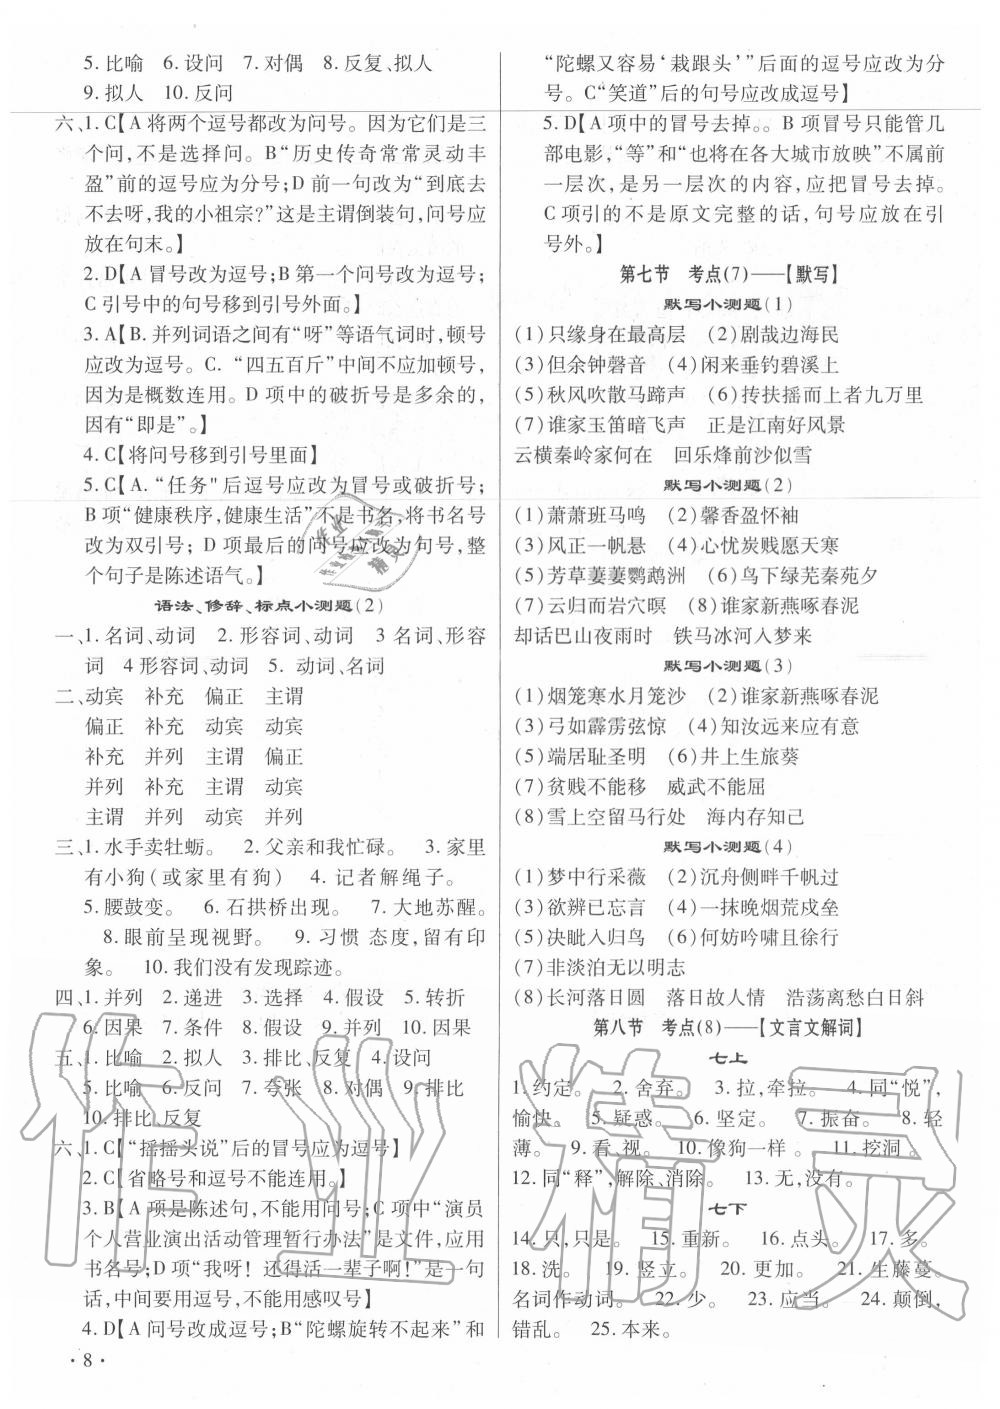 5. 比喻 6. 设问 7. 对偶 8. 反复、拟人
9. 拟人 10. 反问
六、1. C【A 将两个逗号都改为问号。因为它们是三
个问,不是选择问。B“历史传奇常常灵动丰
盈”前的逗号应为分号;D 前一句改为“到底去
不去呀,我的小祖宗?”这是主谓倒装句,问号应
放在句末。】
2. D【A 冒号改为逗号;B 第一个问号改为逗号;
C 引号中的句号移到引号外面。】
3. A【B. 并列词语之间有“呀”等语气词时,顿号
应改为逗号。C. “四五百斤”中间不应加顿号,
因为是概数连用。D 项中的破折号是多余的,
因有“即是”。】
4. C【将问号移到引号里面】
5. C【A. “任务"后逗号应改为冒号或破折号;
B 项“健康秩序,健康生活”不是书名,将书名号
改为双引号; D 项最后的问号应改为句号,整
个句子是陈述语气。】
语法、修辞、标点小测题(2)
一、1. 名词、动词 2. 形容词、动词 3 名词、形容
词 4 形容词、动词 5. 动词、名词
二、动宾 补充 偏正 主谓
偏正 补充 动宾 动宾
补充 并列 主谓 偏正
并列 补充 主谓 动宾
主谓 并列 动宾 并列
三、1. 水手卖牡蛎。 2. 父亲和我忙碌。 3. 家里
有小狗(或家里有狗) 4. 记者解绳子。
5. 腰鼓变。 6. 石拱桥出现。 7. 大地苏醒。
8. 眼前呈现视野。 9. 习惯 态度,留有印
象。 10. 我们没有发现踪迹。
四、1. 并列 2. 递进 3. 选择 4. 假设 5. 转折
6. 因果 7. 条件 8. 假设 9. 并列 10. 因果
五、1. 比喻 2. 拟人 3. 排比、反复 4. 设问
5. 比喻 6. 反问 7. 夸张 8. 对偶 9. 排比
10. 排比、反复
六、1. C【“摇摇头说”后的冒号应为逗号】
2. C【省略号和逗号不能连用。】
3. B【A 项是陈述句,不能用问号;C 项中“演员
个人营业演出活动管理暂行办法”是文件,应用
书名号;D 项“我呀！还得活一辈子啊!”是一句
话,中间要用逗号,不能用感叹号】
4. D【A 问号改成逗号;B“陀螺旋转不起来”和
“陀螺又容易‘栽跟头’”后面的逗号应改为分
号。C“笑道”后的句号应改成逗号】
5. D【A 项中的冒号去掉。。B 项冒号只能管几
部电影,“等”和“也将在各大城市放映”不属前
一层次,是另一层次的内容,应把冒号去掉。
C 项引的不是原文完整的话,句号应放在引
号外。】
第七节 考点(7)——【默写】
默写小测题(1)
(1)只缘身在最高层 (2)剧哉边海民
(3)但余钟磬音 (4)闲来垂钓碧溪上
(5)秋风吹散马蹄声 (6)抟扶摇而上者九万里
(7)谁家玉笛暗飞声 正是江南好风景
云横秦岭家何在 回乐烽前沙似雪
默写小测题(2)
(1)萧萧班马鸣 (2)馨香盈怀袖
(3)风正一帆悬 (4)心忧炭贱愿天寒
(5)芳草萋萋鹦鹉洲 (6)鸟下绿芜秦苑夕
(7)云归而岩穴暝 (8)谁家新燕啄春泥
却话巴山夜雨时 铁马冰河入梦来
默写小测题(3)
(1)烟笼寒水月笼沙 (2)谁家新燕啄春泥
(3)弓如霹雳弦惊 (4)知汝远来应有意
(5)端居耻圣明 (6)井上生旅葵
(7)贫贱不能移 威武不能屈
(8)雪上空留马行处 海内存知己
默写小测题(4)
(1)梦中行采薇 (2)沉舟侧畔千帆过
(3)欲辨已忘言 (4)一抹晚烟荒戍垒
(5)决眦入归鸟 (6)何妨吟啸且徐行
(7)非淡泊无以明志
(8)长河落日圆 落日故人情 浩荡离愁白日斜
第八节 考点(8)——【文言文解词】
七上
1. 约定。 2. 舍弃。 3. 拉,牵拉。 4. 同“悦”,
愉快。 5. 疑惑。 6. 坚定。 7. 振奋。 8. 轻
薄。 9. 看、视。 10. 像狗一样 。 11. 挖洞 。
12. 同“释”,解除、消除。 13. 无,没有。
七下
14. 只,只是。 15. 重新。 16. 点头。 17. 多。
18. 洗。 19. 竖立。 20. 更加。 21. 生藤蔓。
名词作动词。 22. 少。 23. 应当。 24. 颠倒,
错乱。 25. 本来。
· 8 ·
作业精灵